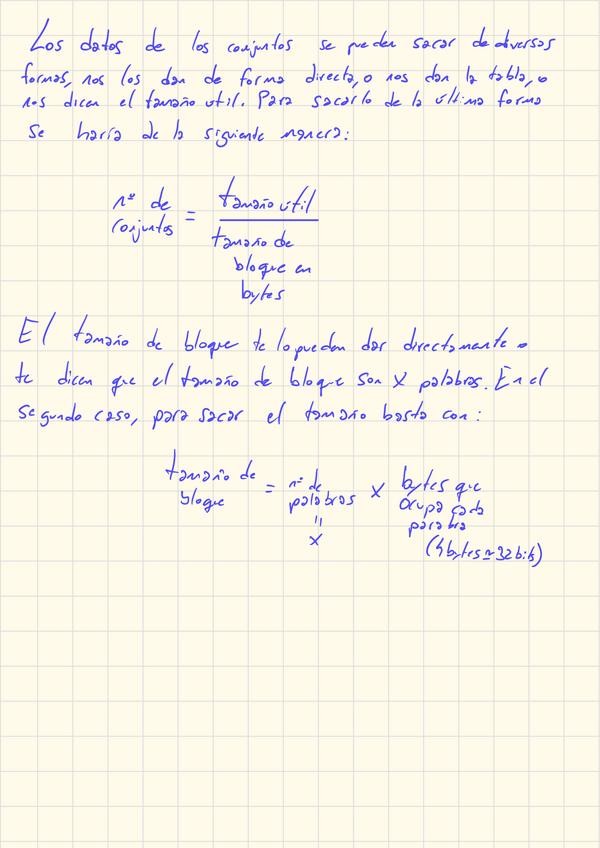 Los datos de los conjuntos se pueden sacar de diversas
formas, nos los dan de forma directa, o nos dan la tabla, o
nos dicen el tamaño util. Para sacarlo de la última forma
se haría de la siguiente manera:
nº de conjuntos = tamaño útil / tamaño de bloque en bytes
El tamaño de bloque te lo pueden dar directamente o
te dicen que el tamaño de bloque son X palabras. En el
segundo caso, para sacar el tamaño basta con:
tamaño de bloque = nº de palabras x bytes que ocupa cada parabra
"
x
(4bytes≃32bits)